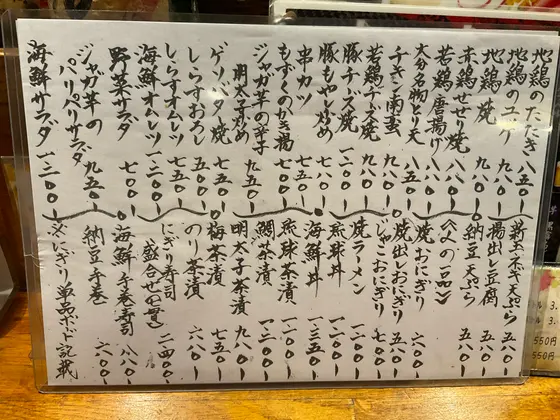 地鶏のたたき 八五〇-
地鶏のユッケ 九八〇-
地鶏焼 九八〇-
赤鶏せせり焼 八八〇-
若鶏唐揚げ 八八〇-
大分名物とり天 八五〇-
チキン南蛮 九八〇-
若鶏チーズ焼 九八〇-
豚チーズ焼 一二〇〇-
豚もやし炒め 七八〇-
串カツ 七五〇-
もずくのかき揚 七〇〇-
ジャガ芋の辛子明太子炒め 九五〇-
ゲソバター焼 七五〇-
しらすおろし 五〇〇-
しらすオムレツ 七五〇-
海鮮オムレツ 一二〇〇-
野菜サラダ 七〇〇-
ジャガ芋のパリパリサラダ 九五〇-
海鮮サラダ 一三〇〇-
新玉ネギ天ぷら 五八〇-
揚出し豆腐 五八〇-
納豆天ぷら 五八〇-
〈〆の一品〉
焼おにぎり 六〇〇-
焼出しおにぎり 五八〇-
じゃこおにぎり 七〇〇-
焼ラーメン 一一〇〇-
琉球丼 一二〇〇-
海鮮丼 一三五〇-
琉球茶漬 一一〇〇-
鯛茶漬 一二〇〇-
明太子茶漬 九八〇-
梅茶漬 七八〇-
のり茶漬 六八〇-
にぎり寿司盛合せ(八貫) 二四〇〇-
海鮮手巻寿司 八八〇-
納豆手巻 六八〇-
※にぎり単品ボード記載
550円
550円